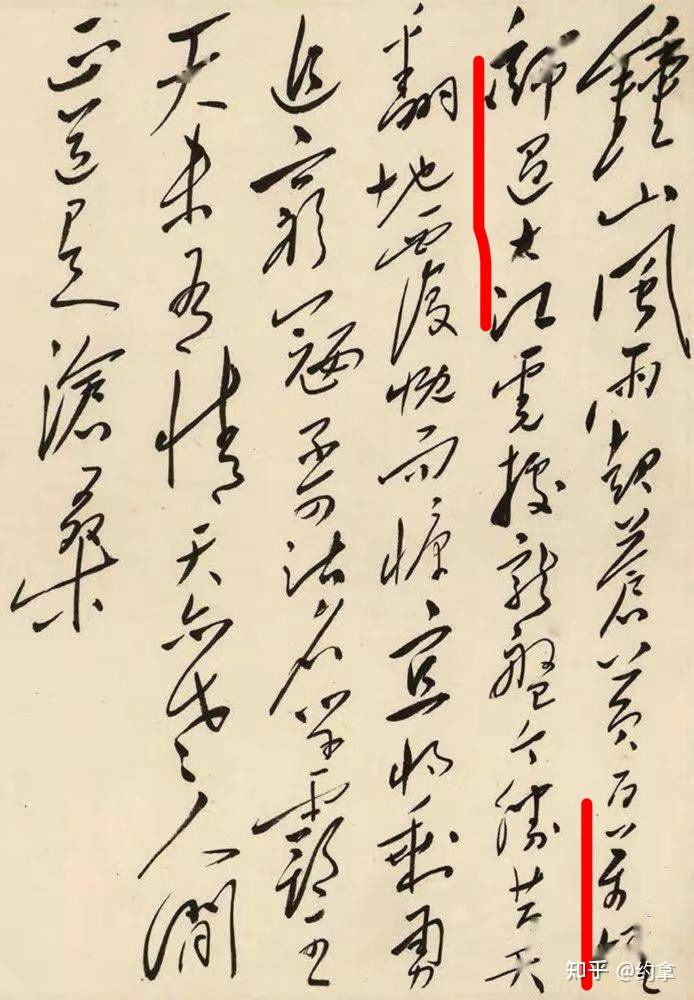 鍾山風雨起蒼黃百萬雄
師過大江虎據龍盤今勝昔天
翻地覆慨而慷宜將剩勇
追窮寇不可沽名學霸王
天若有情天亦老人間
正道是滄桑
知乎 @约拿